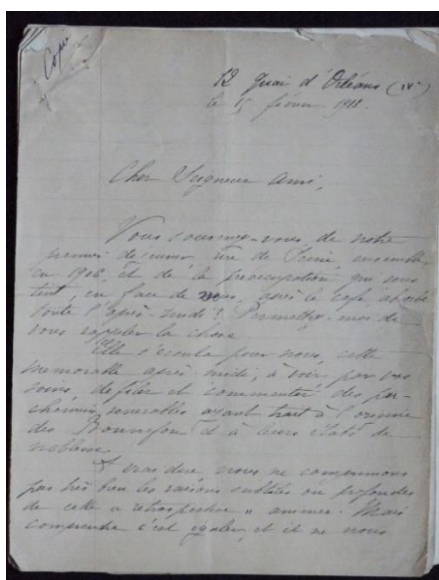 Copie
12 Quai d'Orléans (IVe)
le 15 février 1918.
Cher Seigneur ami,
Vous souvenez-vous de notre
premier déjeuner, ensemble
en 1908, et de la préoccupation qui vous
tint, en face de nous, après le café
toute l'après-midi ? Permettez-moi de
vous rappeler la chose.
Elle s'écoula pour nous, cette
mémorable après-midi, à voir par vos
soins, défiler et commenter des par-
chemins vénérables ayant trait à l'origine
des Bonnefon et à leurs états de
noblesse.
A vrai dire nous ne comprenions
pas très bien les raisons subtiles ou profondes
de cette « rétrospective » . Mais
comprendre c'est égaler, et il ne nous